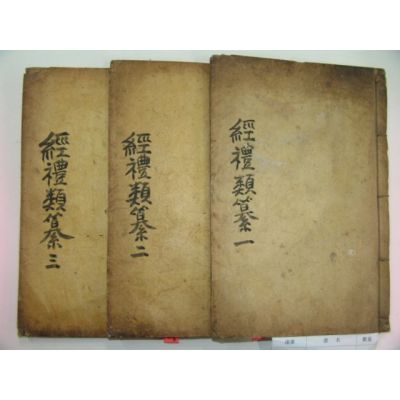 經禮類纂 一
經禮類纂 二
經禮類纂 三